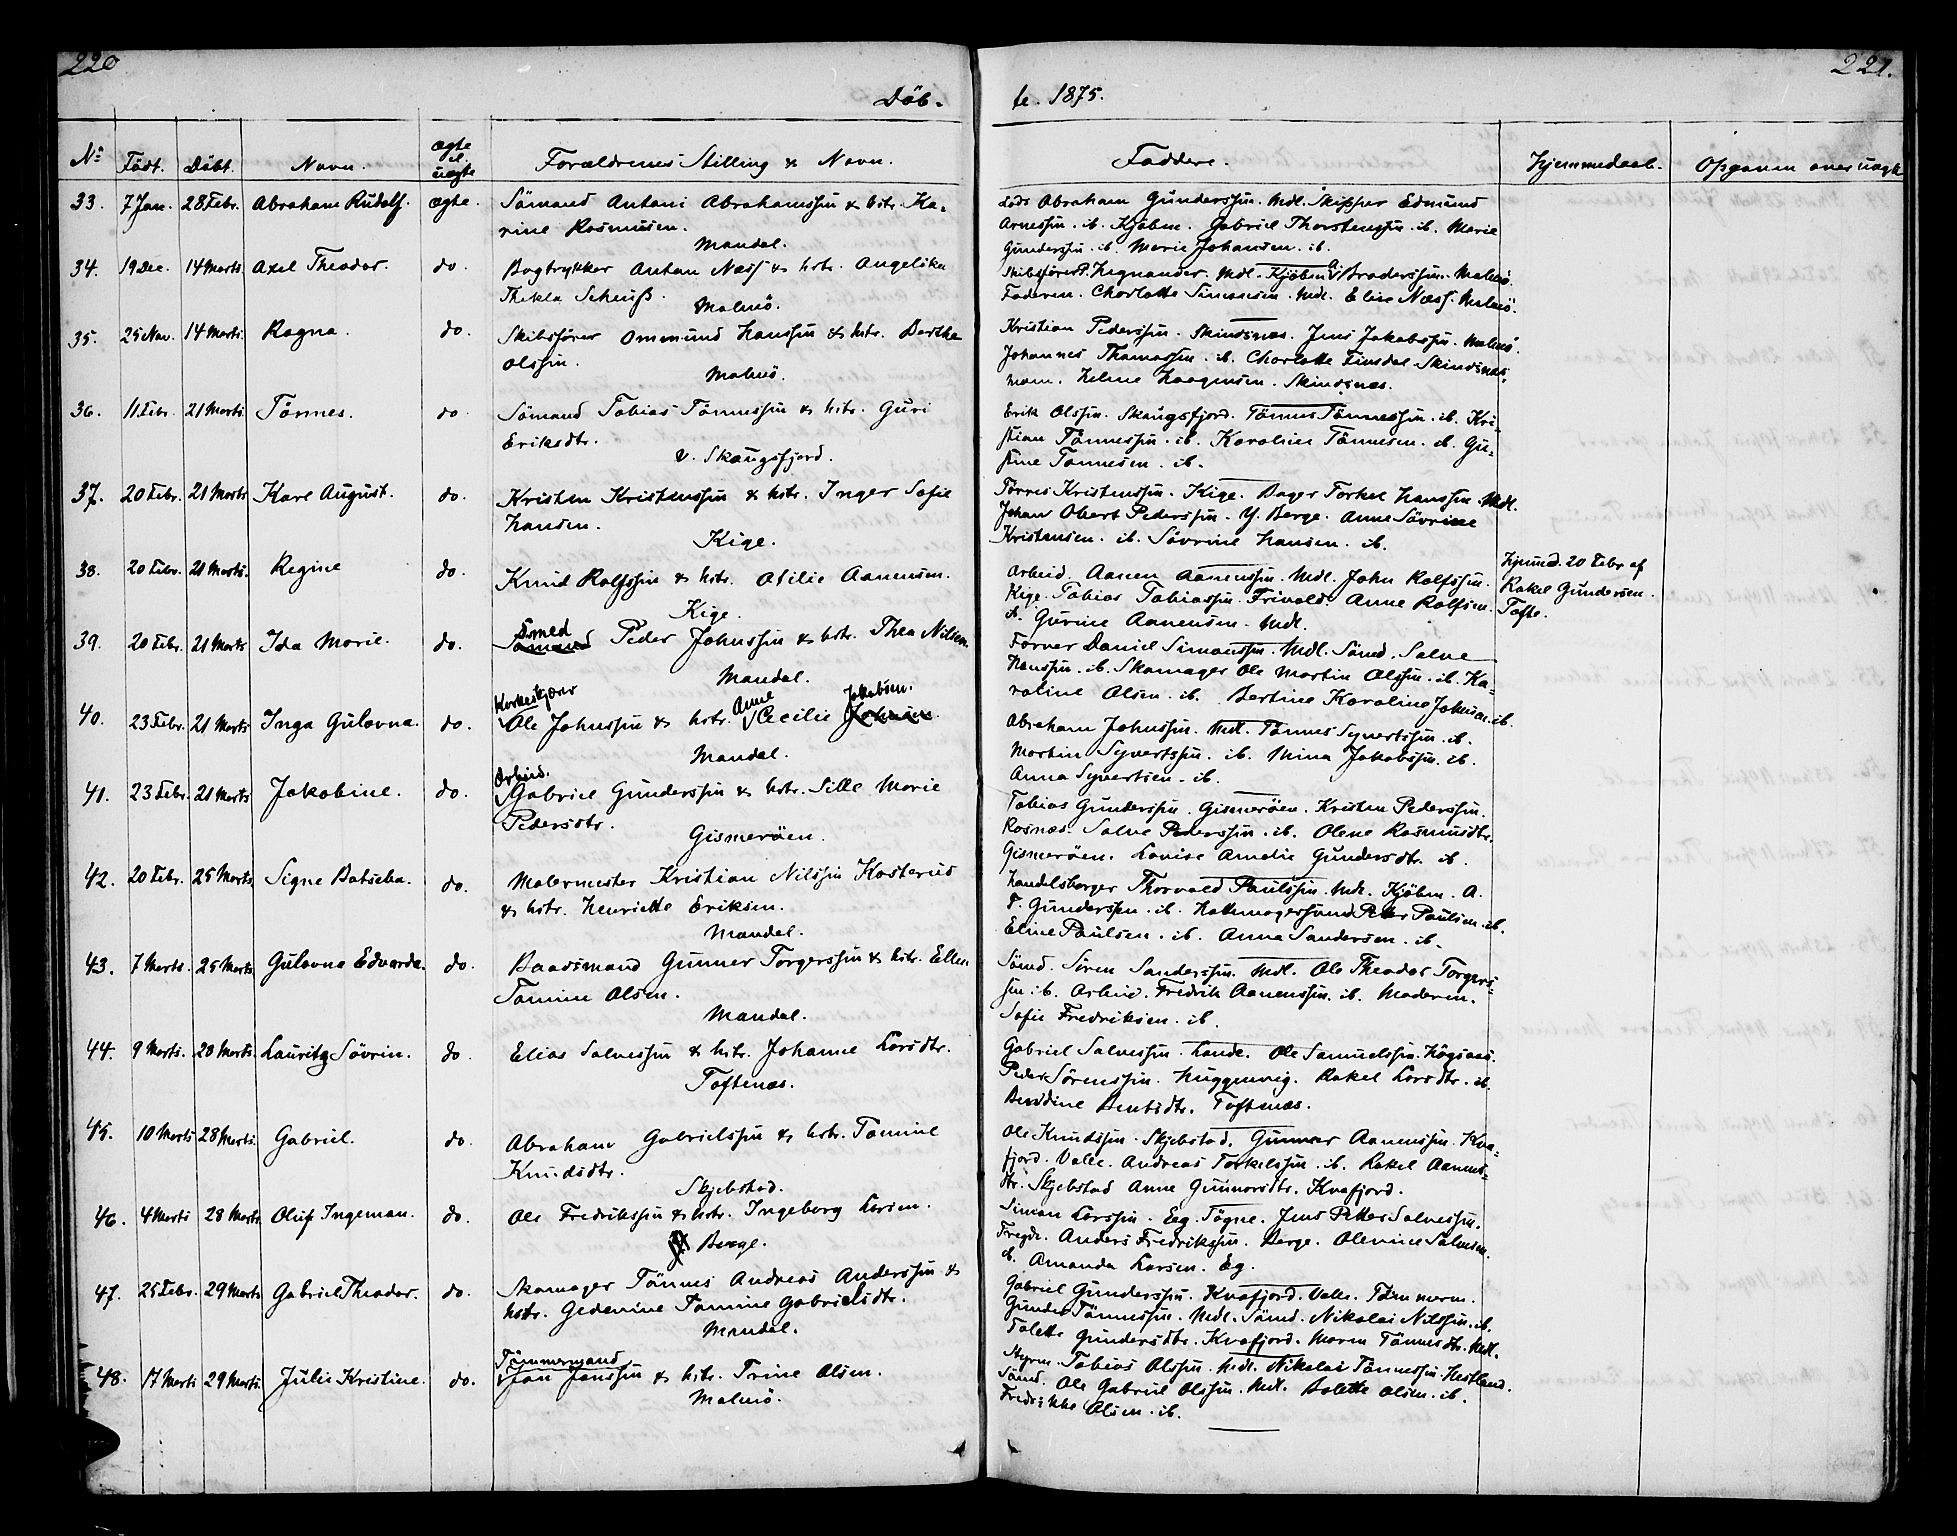 220
221.
Döb-
te. 1875.
No
Födt.
Döbt.
Navn.
ægte
el.
uægte
Forældrenes Stilling & Navn.
Faddere.
Hjemmedaab.
Opgaven over uægte
33. 7 Jan. 28 Febr. Abraham Rudolf. ægte. Sömand Antoni Abrahamssen & hstr. Ka-
rine Rasmusen.
Mandal.
Lods Abraham Gunderssen. Mdl. Skipper Edmund
Arnessen. ib. Kjöbm. Gabriel Thorstenssen. ib. Marie
Gunderssen. ib. Marie Johansen. ib.
34. 19 Dec. 14 Marts. Axel Theodor. do. Bogtrykker Anton Næss & hstr. Angelika
Thekla Scheuss.
Malmö.
Skibsförer P. Zegnander. Mdl. Kjöbm. Brodersen. Malmö.
Faderen. Charlotte Simonsen. Mdl. Elise Næss. Malmö.
35. 25 Nov. 14 Marts. Ragna. do. Skibsförer Ommund Hanssen & hstr. Berthe
Olssen.
Malmö.
Kristian Pederssen. Skindsnæs. Jens Jakobssen. Malmö.
Johannes Thomassen. ib. Charlotte Finsdal. Skindsnæs.
Helene Haagensen. Skindsnæs.
36. 11 Febr. 21 Marts. Tönnes. do. Sömand Tobias Tönnessen & hstr. Guri
Eriksdtr.
v. Skaugsfjord.
Erik Olssen. Skaugsfjord. Tönnes Tönnessen. ib. Kri-
stian Tönnessen. ib. Karoline Tönnesen. ib. Gu-
stine Tönnesen. ib.
37. 20 Febr. 21 Marts Karl August. do. Kristen Kristenssen & hstr. Inger Sofie
Hansen.
Kige.
Törres Kristenssen. Kige. Bager Torkel Hanssen. Mdl.
Johan Obert Pederssen. Y. Berge. Anne Sövrine
Kristensen. ib. Sövrine Hansen. ib.
38. 20 Febr. 21 Marts. Regine do. Knud Rolfssen & hstr. Otilie Aanensen.
Kige.
Arbeid. Aanen Aanenssen. Mdl. John Rolfssen.
Kige. Tobias Tobiassen. Frivold. Anne Rolfsen.
ib. Gurine Aanensen. Mdl.
Hjemmd. 20 Febr. af
Rakel Gundersen.
Tofte.
39. 20 Febr. 21 Marts Ida Marie. do. Smed Sömand Peder Johnssen & hstr. Thea Nilsen.
Mandal.
Forver Daniel Simonssen. Mdl. Sömd. Salve
Hanssen. ib. Skomager Ole Martin Olssen. ib. Ka-
roline Olsen. ib. Bertine Karoline Johnsen. ib.
40. 23 Febr. 21 Marts Inga Gulovna. do. Kirketjener Ole Johnssen & hstr. Anne Cecilie Johnsen Jakobsen.
Mandal.
Abraham Johnssen. Mdl. Tönnes Syvertssen. ib.
Martin Syvertssen. ib. Mina Jakobssen. ib.
Anna Syvertsen. ib.
41. 23 Febr. 21 Marts Jakobine. do. Arbeid. Gabriel Gunderssen & hstr. Sille Marie
Pedersdtr.
Gismeröen.
Tobias Gunderssen. Gismeröen. Kristen Pederssen.
Rosnæs. Salve Pederssen. ib. Olene Rasmusdtr.
Gismeröen. Lovise Amelie Gundersdtr. ib.
42. 20 Febr. 25 Marts Signe Batseba. do. Malermester Kristian Nilssen Kosterus
& hstr. Henriette Eriksen.
Mandal.
Handelsborger Thorvald Paulssen. Mdl. Kjöbm. A.
F. Gunderssen. ib. Hattmagersvend Peter Paulsen. ib.
Eline Paulsen. ib. Anna Sandersen. ib.
43. 7 Marts 25 Marts. Gulovna Edvarda. do. Baadsmand Gunner Torgerssen & hstr. Ellen
Tomine Olsen.
Mandal.
Sömd. Sören Sanderssen. Mdl. Ole Theodor Torgers-
sen. ib. Arbeid. Fredrik Aanenssen. ib. Moderen.
Sofie Fredriksen. ib.
44. 9 Marts. 28 Marts. Lauritz Sövrin. do. Elias Salvessen & hstr. Johanne Larsdtr.
Toftenæs.
Gabriel Salvessen. Lande. Ole Samuelssen. Högsaas.
Peder Sörenssen. Huggenvig. Rakel Larsdtr. ib.
Berddine Berntsdtr. Toftenæs.
45. 10 Marts 28 Marts. Gabriel. do. Abraham Gabrielssen & hstr. Tomine
Knudsdtr.
Skjebstad.
Ole Knudssen. Skjebstad. Gunnar Aanenssen. Kva-
fjord. Valle. Andreas Torkelssen. ib. Rakel Aanens-
dtr. Skjebstad Anne Gunnarsdtr. Kvafjord.
46. 4 Marts 28 Marts. Oluf Ingeman. do. Ole Fredrikssen & hstr. Ingeborg Larsen.
Berge.
Simon Larssen. Eeg. Sögne. Jens Petter Salvessen.
Fregde. Anders Fredrikssen. Berge. Olevine Salvesen.
ib. Amanda Larsen. Eg.
47. 25 Febr. 29 Marts Gabriel Theodor. do. Skomager Tönnes Andreas Anderssen &
hstr. Gedenine Tomine Gabrielsdtr.
Mandal.
Gabriel Gunderssen. Kvafjord. Valle. Tömmerm.
Gunder Tönnessen. Mdl. Sömd. Nikolai Nilssen. ib.
Tolette Gundersdtr. Kvafjord. Maren Tönnesdtr. Mdl.
48. 17 Marts 29 Marts. Julie Kristine. do. Tömmermand Jan Janssen & hstr. Trine Olsen.
Malmö.
Styrm. Tobias Olssen. Mdl. Nikolai Tönnessen. Hestland.
Sömd. Ole Gabriel Olssen. Mdl. Bolette Olsen. ib.
Fredrikke Olsen. ib.